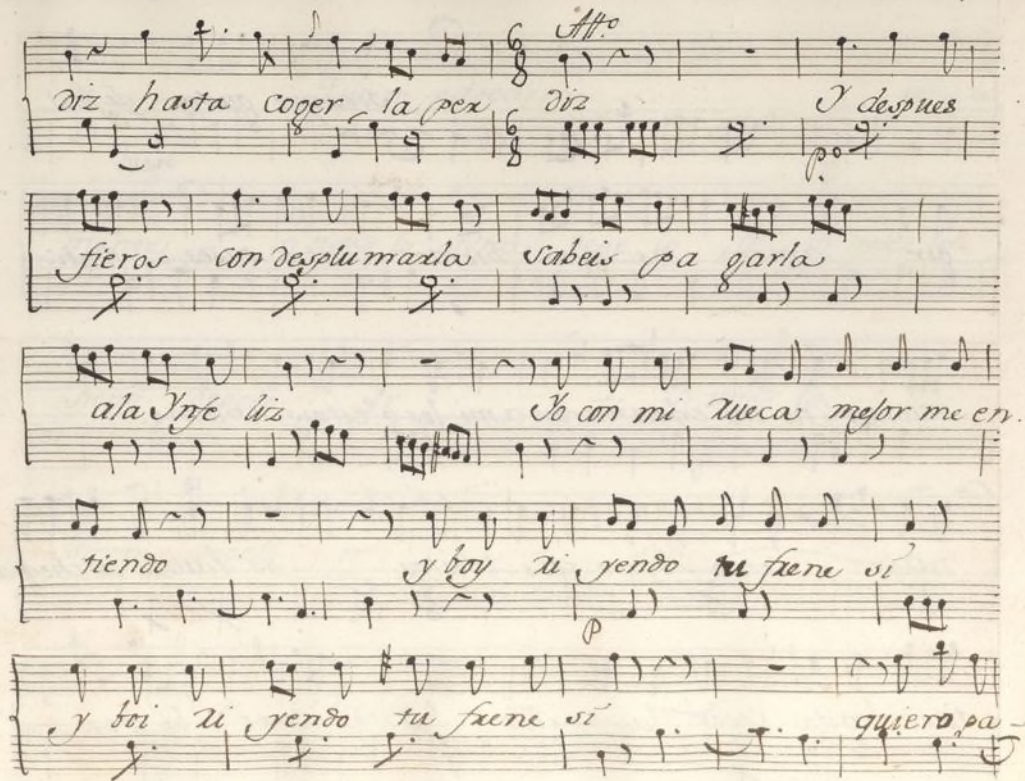 All.o
diz hasta coger la per diz Y despues
p.o
fieros con desplumarla sabeis pa garla
ala Ynfe liz Yo con mi rueca mejor me en.
tiendo y boy ri yendo tu frene si
P
y boi ri yendo tu frene si quiero pa-